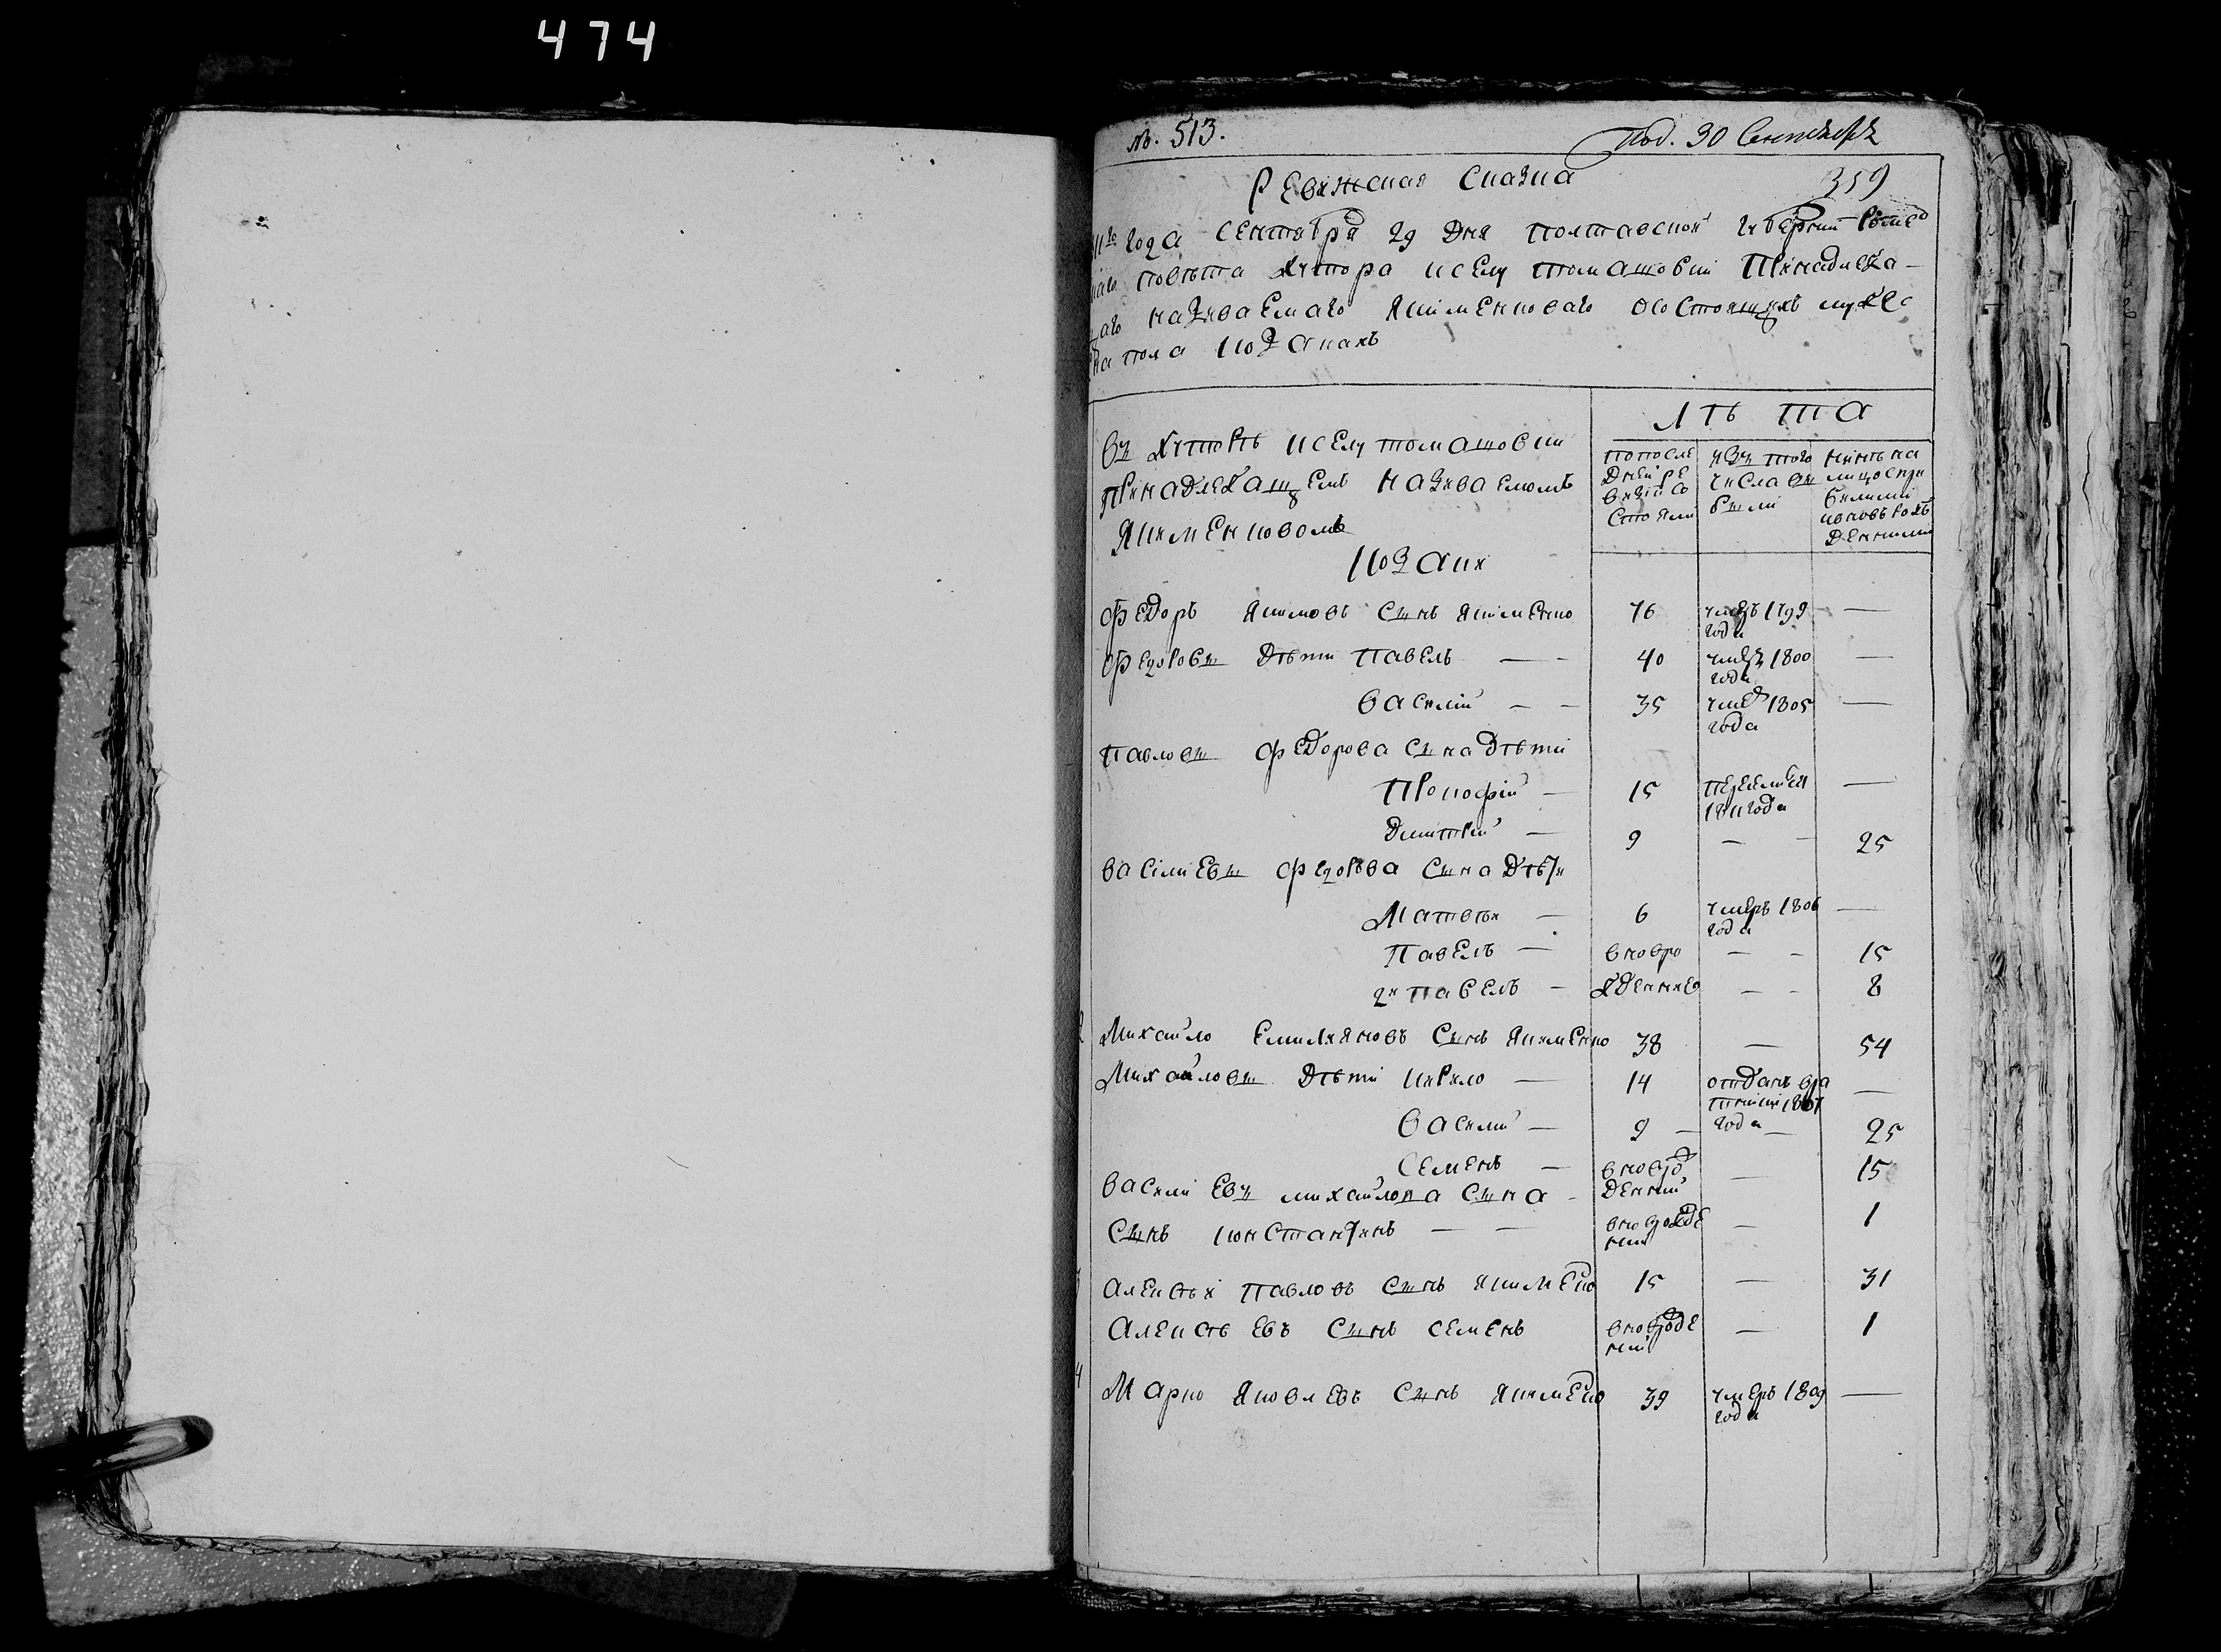 474
№. 513.
под. 30 Сентября
Ревижская Сказка
359
года Сентября 29 дня полтавской губернии Ромен
повета хутора к селу томашовки Принадлежа-
наживаемаго якименковаго осостоящихъ мужес
ка пола козакахъ
Лѣта
въ хуторѣ к селу томашовки
Принадлежащемъ наживаемомъ
Якименковомъ
козаки
попосле
дней ре
визіи со
стояли
изъ того
числа вы
были
нинѣ на
лицо спри
билими
иновърож
денними
Федоръ якимовъ сынъ якименко 76 умеръ 1799 —
года
Федоровы дѣти Павелъ — - 40 умеръ 1800 —
года
василій — — 35 умер 1805 —
года
Павловы Федорова сына дѣти
Прокофій — 15 —
1811 года
Дмитрій — 9 — - 25
василиевы Федорова сына дѣти
Матвѣи — 6 умеръ 1806 —
года
Павелъ — вновро — - 15
2и павелъ — жденние — - 8
2 Михайло Емилияновъ сынъ якименко 38 — 54
Михайловы дѣти кирило — 14 отданъ —
1807
василий — 9 — года — 25
семенъ — вновро — 15
василиевъ михайлова сына - денний
сынъ константинъ — — вноврожде — 1
ний
3 алексѣй Павловъ сынъ якименко 15 — 31
алексѣевъ сынъ семенъ вновроде — 1
ний
4 Марко яковлевъ сынъ якименко 39 умеръ 1809 —
года